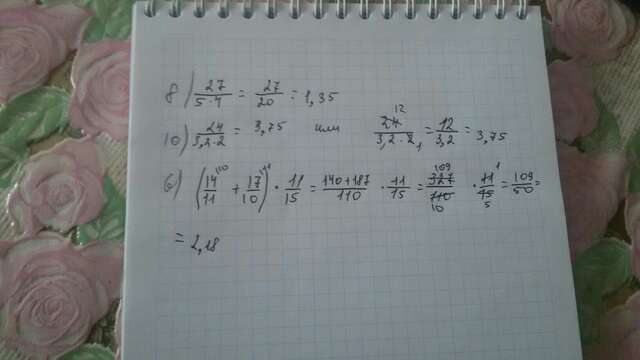 8) 27/5·4 = 27/20 = 1,35
10) 24/3,2·2 = 3,75 или 24 12/3,2·2 1 = 12/3,2 = 3,75
6) (14/11 10 + 17/10 11) · 11/15 = 140+187/110 · 11/15 = 109 327/110 10 · 11 1/15 5 = 109/50 =
= 2,18